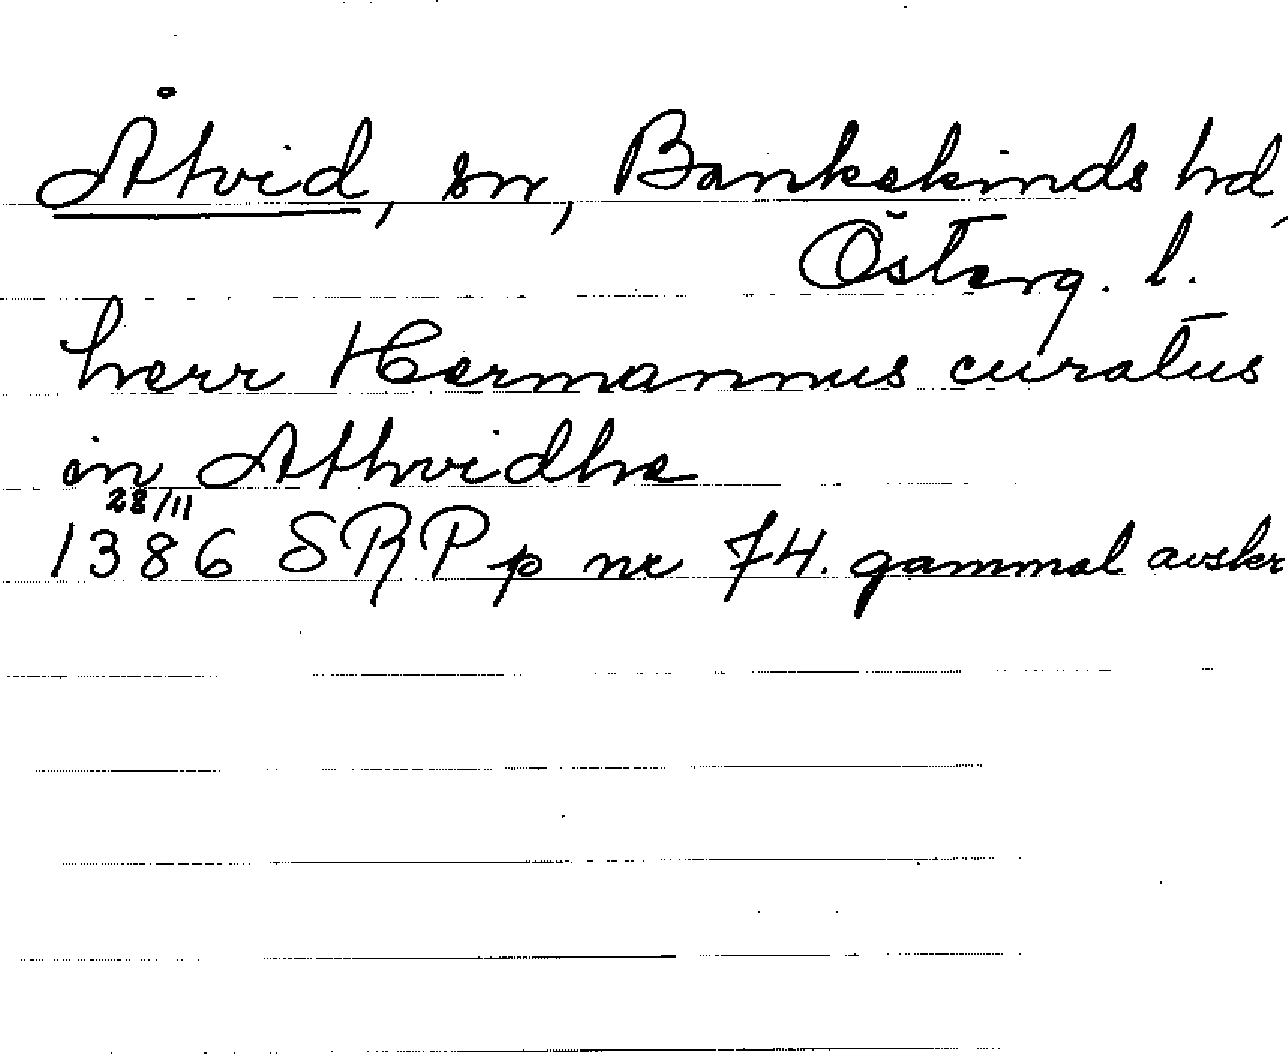 Åtvid, sn, Bankekinds hd,
Österg. l.
herr Hermannus curatus
in Athvidhe
28/11
1386 SRP p nr 74. gammal avskr